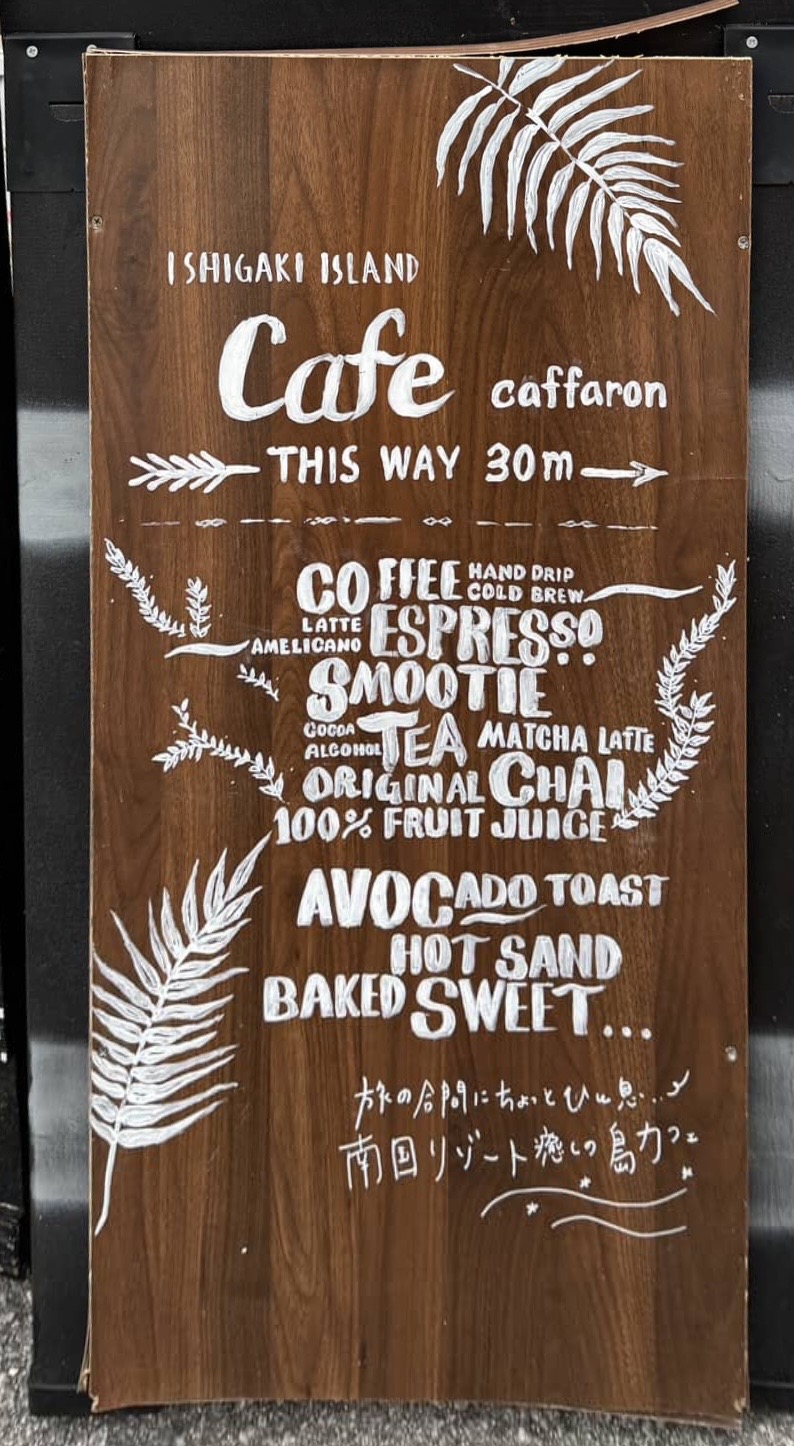 ISHIGAKI ISLAND
Cafe caffaron
THIS WAY 30m
COFFEE HAND DRIP
COLD BREW
LATTE ESPRESSO
AMELICANO
SMOOTIE
COCOA TEA MATCHA LATTE
ALCOHOL
ORIGINAL CHAI
100% FRUIT JUICE
AVOCADO TOAST
HOT SAND
BAKED SWEET...
旅の合間にちょっとひと息...
南国リゾート癒しの島カフェ